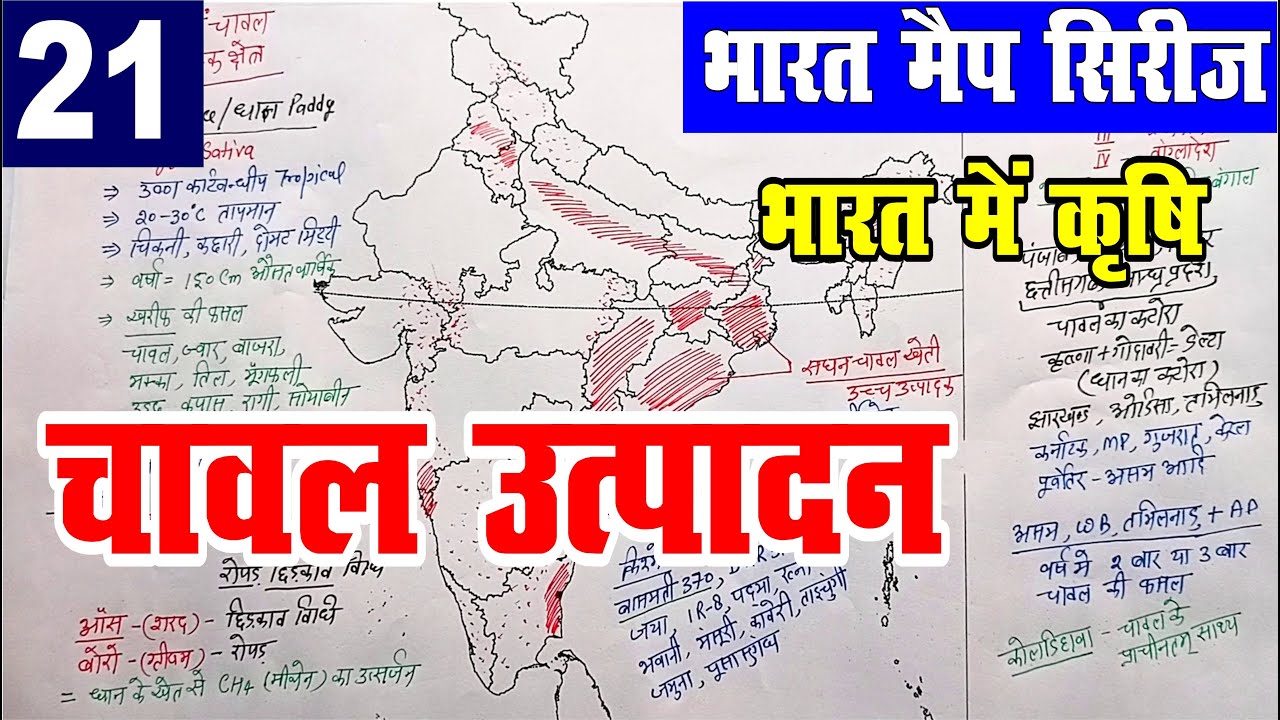 21
भारत मैप सिरीज
भारत में कृषि
चावल उत्पादन
चावल
क क्षेत्र
/धान Paddy
Sativa
⇒ उष्ण कटिबन्धीय Tropical
⇒ 20-30°C तापमान
⇒ चिकनी, कछारी, दोमट मिट्टी
⇒ वर्षा = 150 Cm औसत वार्षिक
⇒ खरीफ की फसल
चावल, ज्वार, बाजरा,
मक्का, तिल, मूँगफली
उड़द, कपास, रागी, सोयाबीन
रोपड़ छिड़काव विधि
ऑस-(शरद) - छिड़काव विधि
बोरो-(ग्रीष्म) - रोपड़
= धान के खेत से CH4 (मीथेन) का उत्सर्जन
सघन चावल खेती
उच्च उत्पादक
बासमती 370,
जया, IR-8, पदमा, रत्ना,
भवानी, मसूरी, कावेरी, ताइचुंग
जमुना, पूसा सुगन्ध
III
IV बांग्लादेश
बंगाल
पंजाब,
छत्तीसगढ़ आन्ध्र प्रदेश,
चावल का कटोरा
कृष्णा + गोदावरी = डेल्टा
(धान का कटोरा)
झारखण्ड, ओडिसा, तमिलनाडु
कर्नाटक, MP, गुजरात, केरल
पूर्वोत्तर - असम आदि
असम, WB, तमिलनाडु + AP
वर्ष मे 2 बार या 3 बार
चावल की फसल
कोलडिहवा - चावल के
प्राचीनतम साक्ष्य